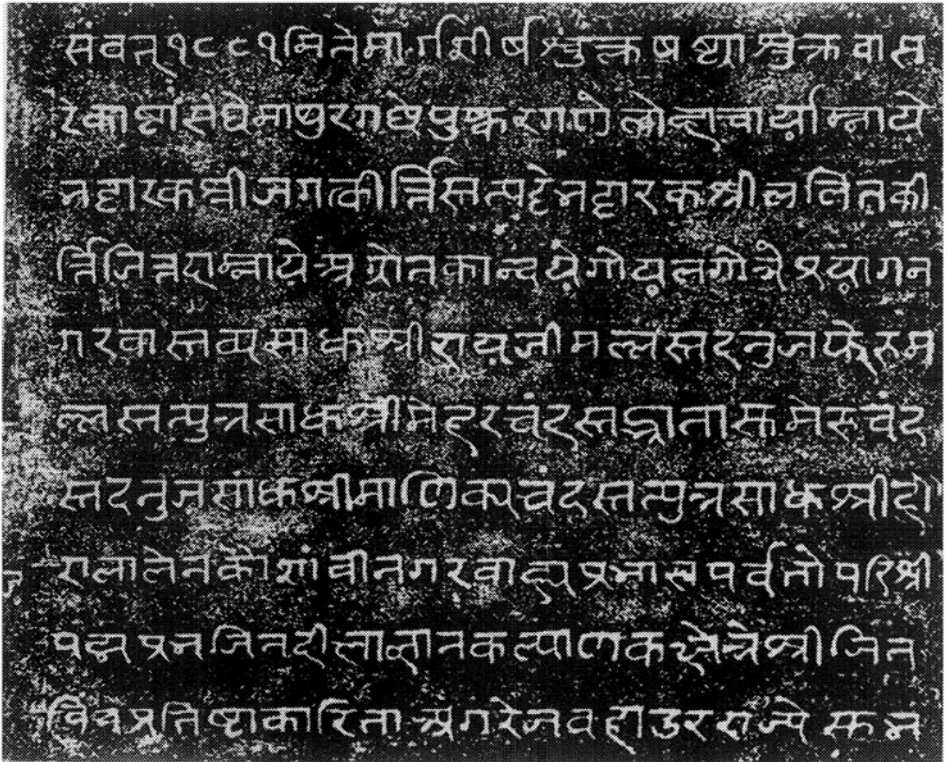 संवत् १८८१ मिते मार्गशीर्षशुक्लषष्ठ्यां शुक्रवास
रे काष्ठासंघे माथुरगच्छे पुष्करगणे लोहाचार्याम्नाये
भट्टारकश्रीजगत्कीर्त्तिस्तत्पट्टे भट्टारकश्रीललितकी
र्त्तिजित्तदाम्नाये अग्रोतकान्वये गोयलगोत्रे प्रयागन
गरवास्तव्यसाधुश्रीरायजीमल्लस्तदनुजफेरुम
ल्लस्तत्पुत्रसाधुश्रीमेहरचंदस्तद्भ्राता सुमेरुचंद
स्तदनुजसाधुश्रीमाणिक्यचंदस्तत्पुत्रसाधुश्रीही
रालालेन कौशांबीनगरवाह्यप्रभासपर्वतोपरि श्री
पद्मप्रभजिनदीक्षाज्ञानकल्याणकक्षेत्रे श्रीजिन
विंवप्रतिष्ठा कारिता अंगरेजवहादुरराज्ये सुभं